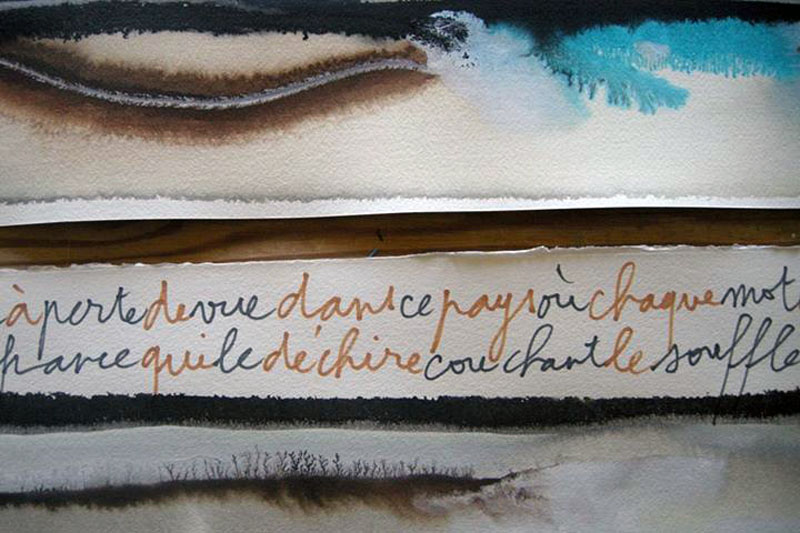 à perte de vue dans ce pays où chaque mot
france qui le déchire couchant le souffle